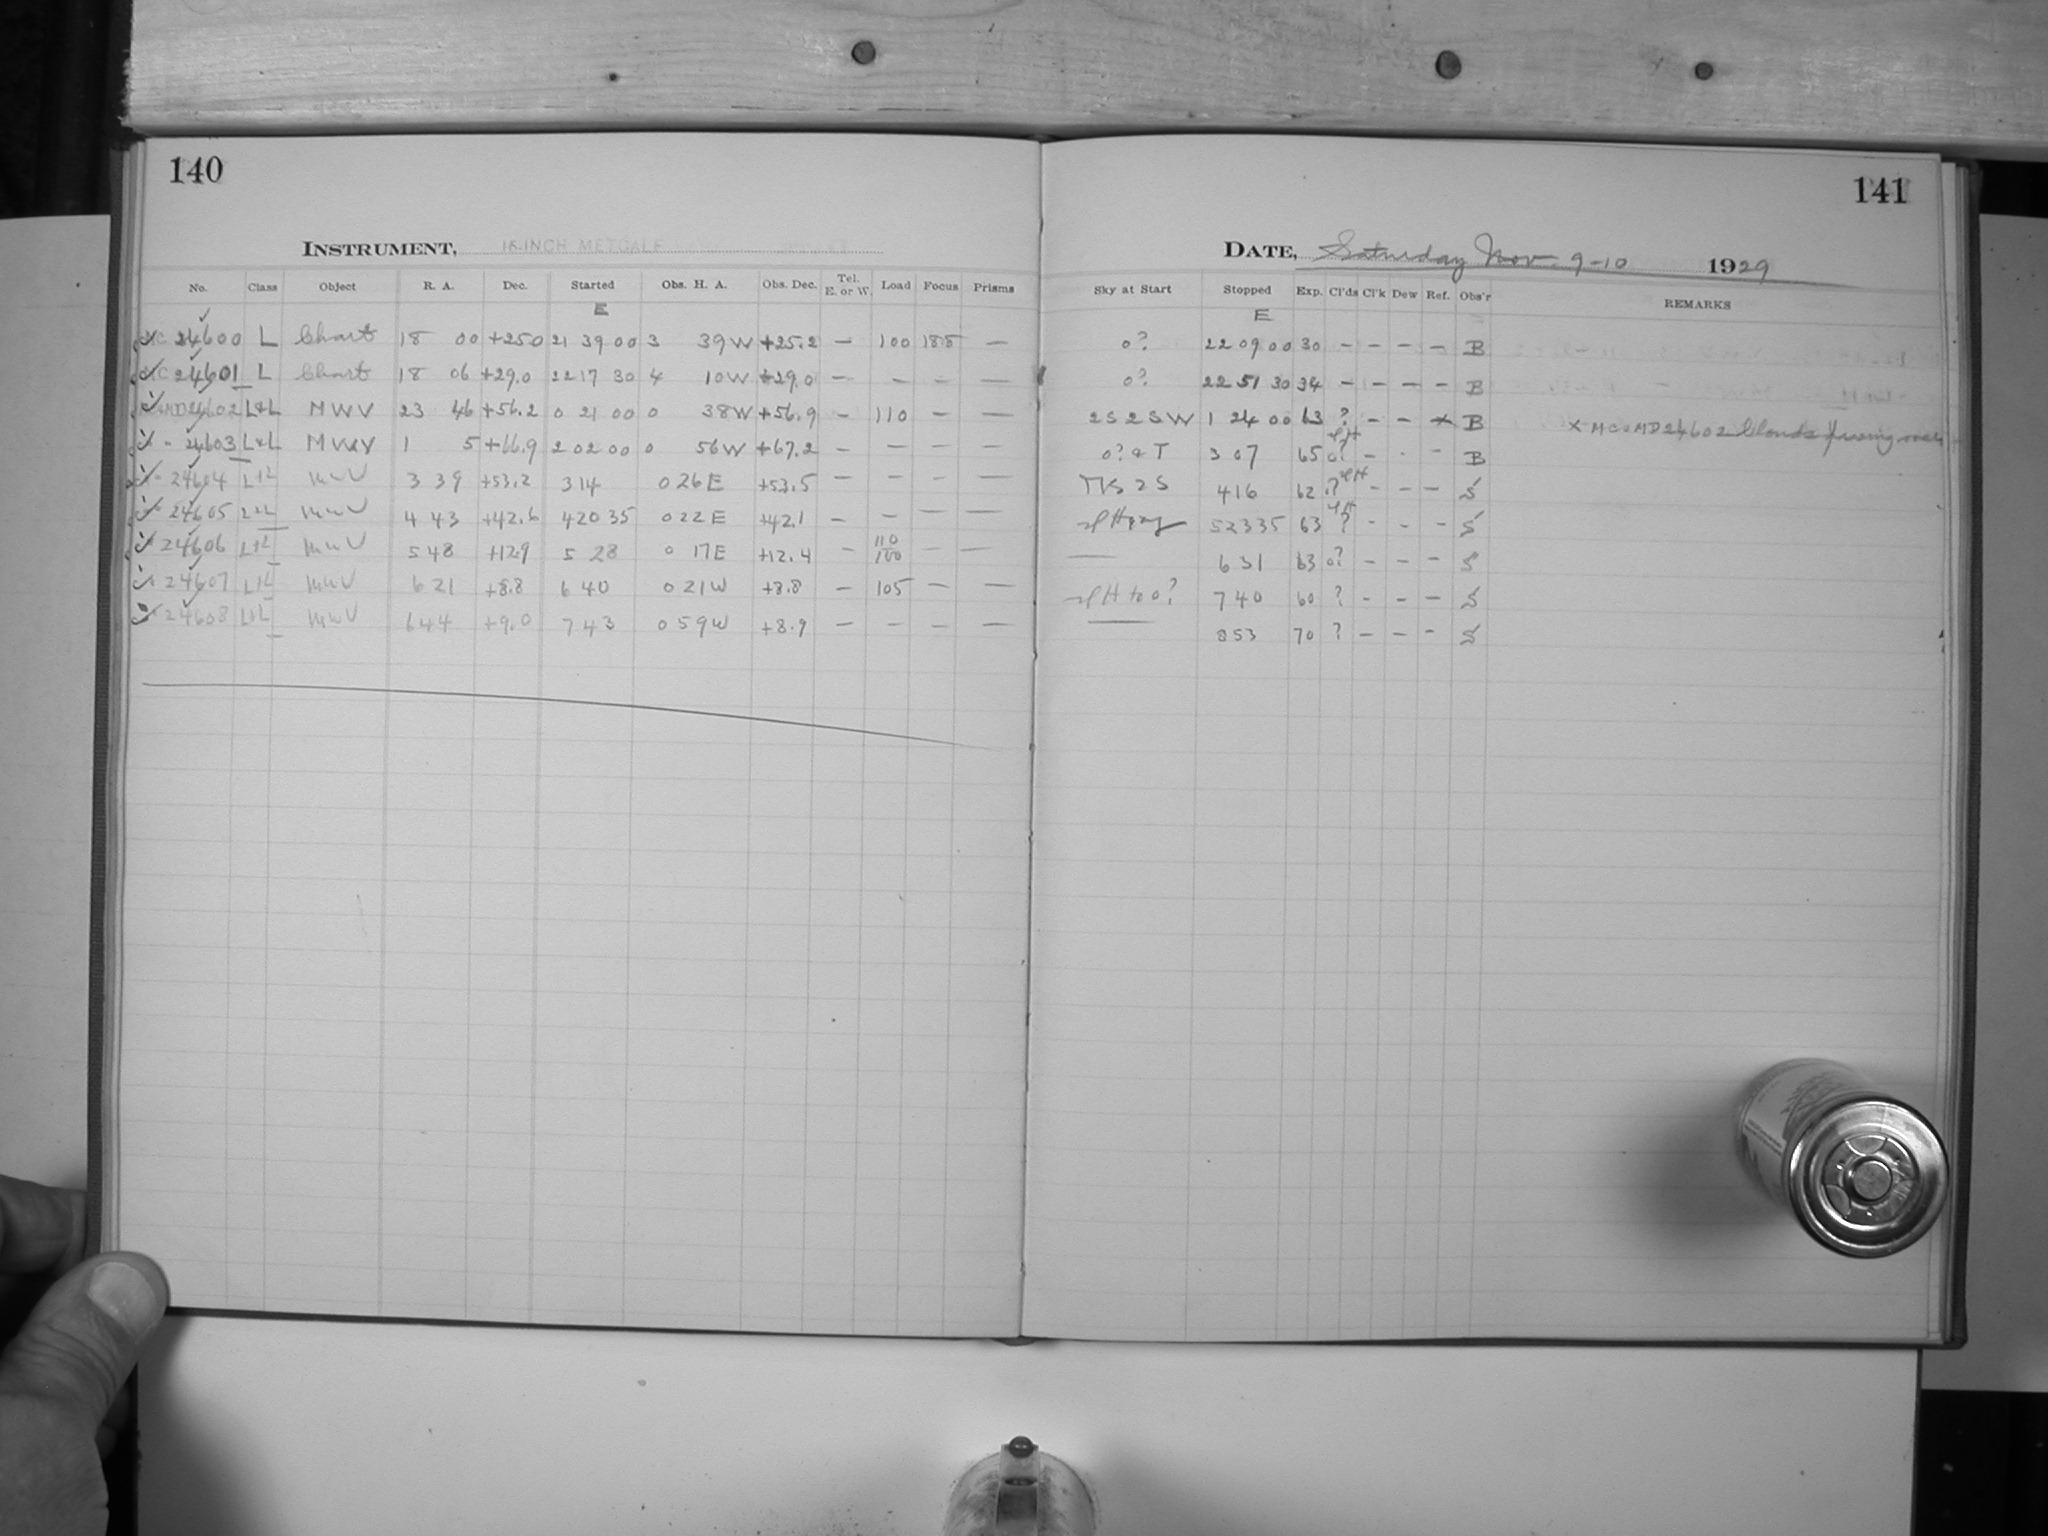 140
INSTRUMENT, 16-INCH METCALF
No. Class Object R. A. Dec. Started Obs. H. A. Obs. Dec. Tel. E. or W. Load Focus Prisms
E
MC 24600 L Chart 18 00 +25.0 21 39 00 3 39 W +25.2 — 100 185 —
MC 24601 L Chart 18 06 +29.0 22 17 30 4 10 W +29.0 — — — —
24602 L+L MWV 23 46 +56.2 0 21 00 0 38 W +56.9 — 110 — —
24603 L+L MWV 1 5 +66.9 2 02 00 0 56 W +67.2 — — — —
24604 L+L MWV 3 39 +53.2 3 14 0 26 E +53.5 — — — —
24605 L+L MWV 4 43 +42.6 4 20 35 0 22 E +42.1 — — — —
24606 L+L MWV 5 48 +12.9 5 28 0 17 E +12.4 — 110 100 — —
24607 L+L MWV 6 21 +8.8 6 40 0 21 W +8.8 — 105 — —
24608 L+L MWV 6 44 +9.0 7 43 0 59 W +8.9 — — — —
141
DATE, Saturday Nov. 9-10 1929
Sky at Start Stopped Exp. Cl'ds Cl'k Dew Ref. Obs'r REMARKS
E
0? 22 09 00 30 — — — — B
0? 22 51 30 34 — — — — B
2S 2SW 1 24 00 63 ? — — x B x MC & MD 24602 Clouds
0? & T 3 07 65 0? — - — B
2S 4 16 62 ? — — — S
5 23 35 63 ? — — — S
— 6 31 63 0? — — — S
to 0? 7 40 60 ? — — — S
— 8 53 70 ? — — — S